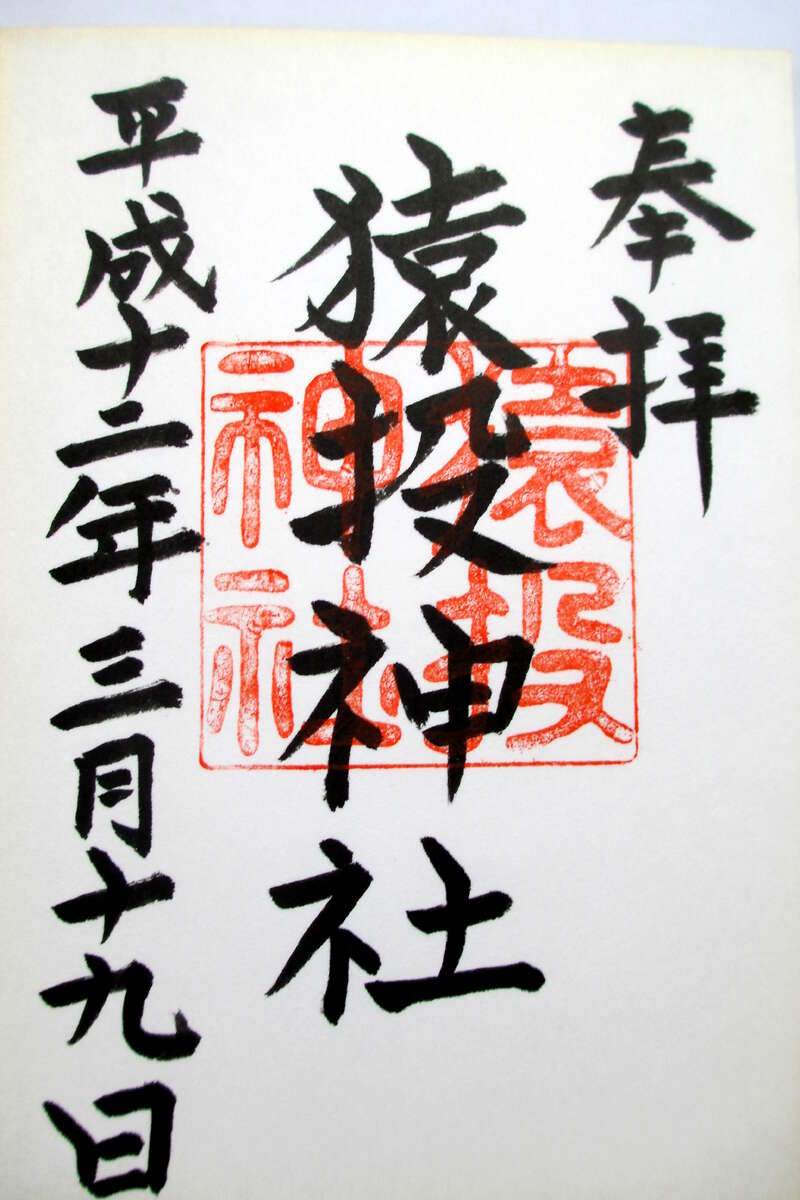 奉拝
猿投神社
猿投
神社
平成十二年三月十九日